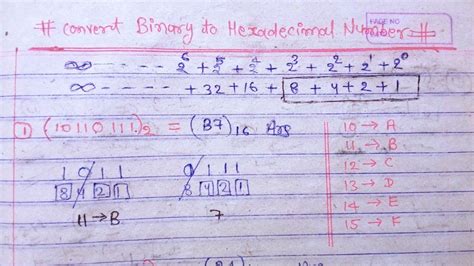 # Convert Binary to Hexadecimal Number #
PAGE NO
∞ - - - - - 2^6 + 2^5 + 2^4 + 2^3 + 2^2 + 2^1 + 2^0
∞ - - - - - + 32 + 16 + 8 + 4 + 2 + 1
1 (10110111.)2 = (B7)16 Ans
1 0 1 1
8 4 2 1
11 → B
0 1 1 1
8 4 2 1
7
10 → A
11 → B
12 → C
13 → D
14 → E
15 → F